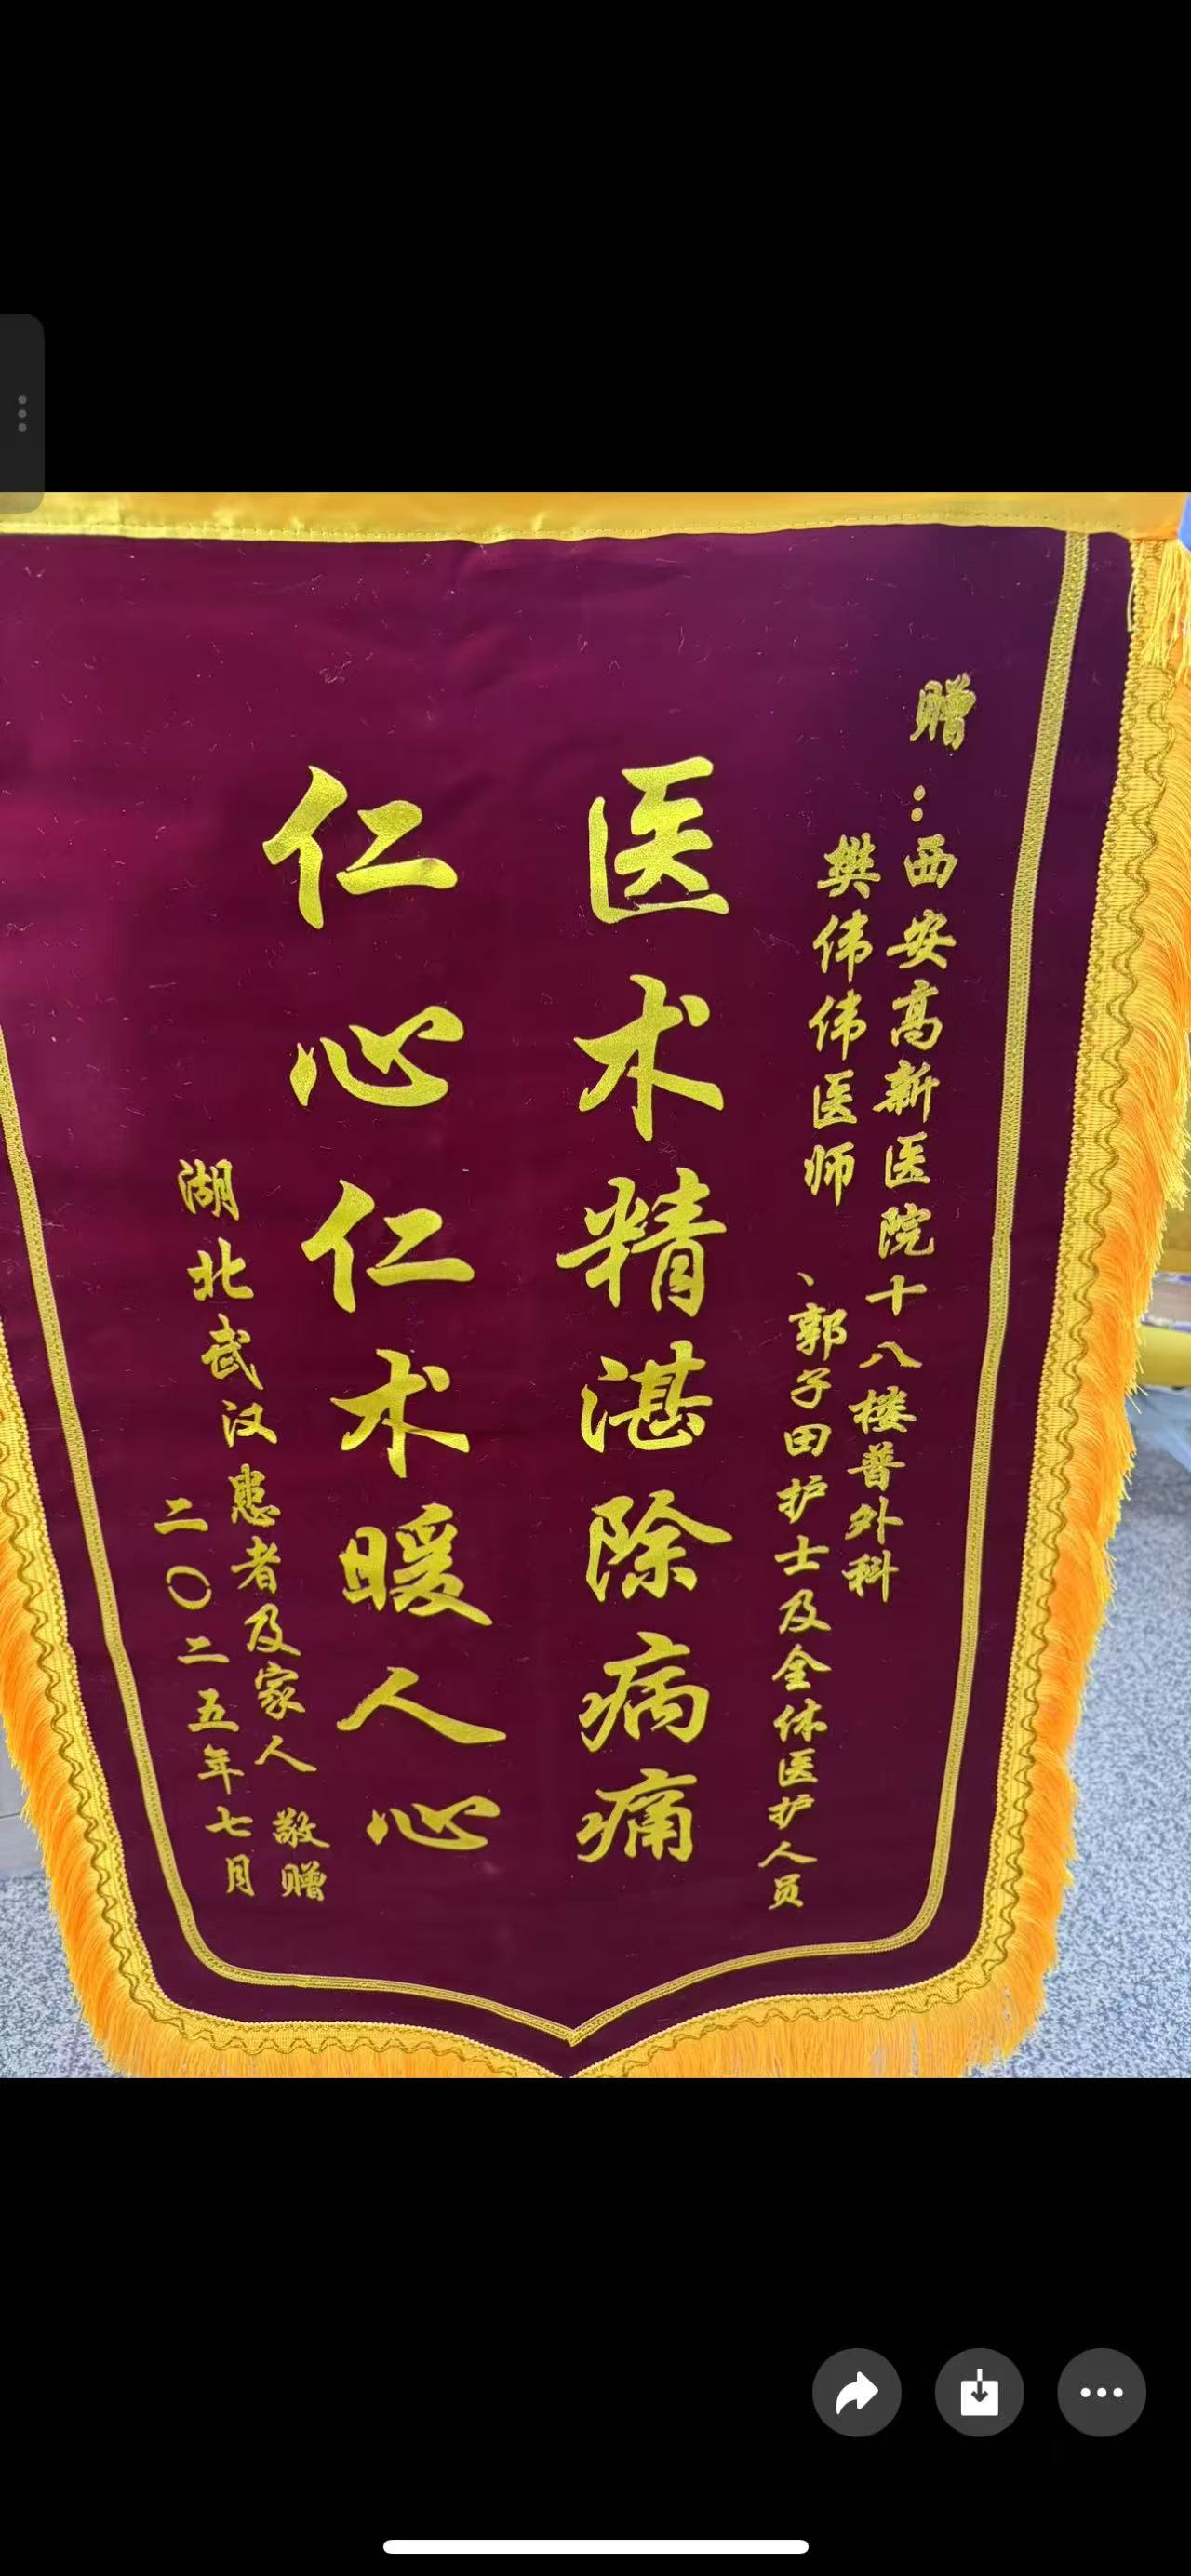 赠：西安高新医院十八楼普外科
樊伟伟医师、郭子田护士及全体医护人员
医术精湛除病痛
仁心仁术暖人心
湖北武汉患者及家人 敬赠
二〇二五年七月